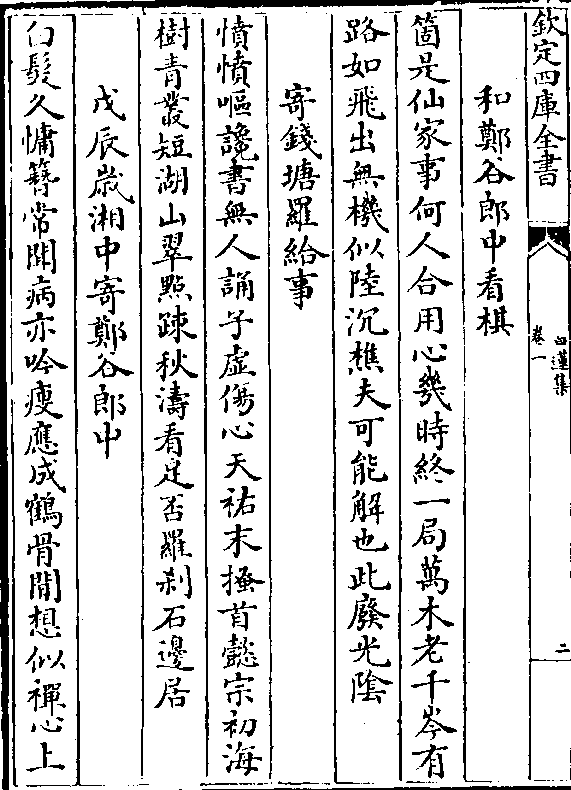 欽定四庫全書
白蓮集
卷一
二
和鄭谷郎中看棋
箇是仙家事何人合用心幾時終一局萬木老千岑有
路如飛出無機似陸沉樵夫可能解也此廢光陰
寄錢塘羅給事
憤憤嘔讒書無人誦子虛傷心天祐末搔首懿宗初海
樹青叢短湖山翠點疎秋濤看足否羅刹石邊居
戊辰歲湘中寄鄭谷郎中
白髮久慵簪常聞病亦吟瘦應成鶴骨閒想似禪心上